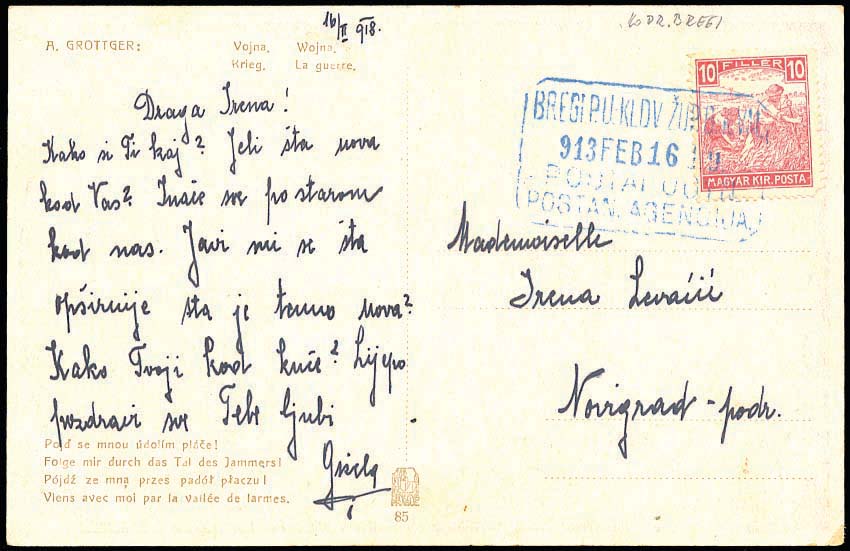 16/II 918.
Ko DR. BREGI
A. GROTTGER:
Vojna. Wojna.
Krieg. La guerre.
Draga Irena!
Kako si Ti kaj? Jeli šta nova
kod Vas? Inače sve po starom
kod nas. Javi mi se šta
opširnije šta je tamo nova?
Kako Tvoji kod kuće? Lijepo
pozdravi sve Tebe ljubi
Gisela
Pojď se mnou údolím pláče!
Folge mir durch das Tal des Jammers!
Pójdź ze mną przes padół płaczu!
Viens avec moi par la vallée de larmes.
85
10 FILLER 10
MAGYAR KIR. POSTA
BREGI P.U. KLDV ŽUP.
913 FEB 16
POSTAI
POSTAN. AGENCIJA
Mademoiselle
Irena Levačić
Novigrad - podr.